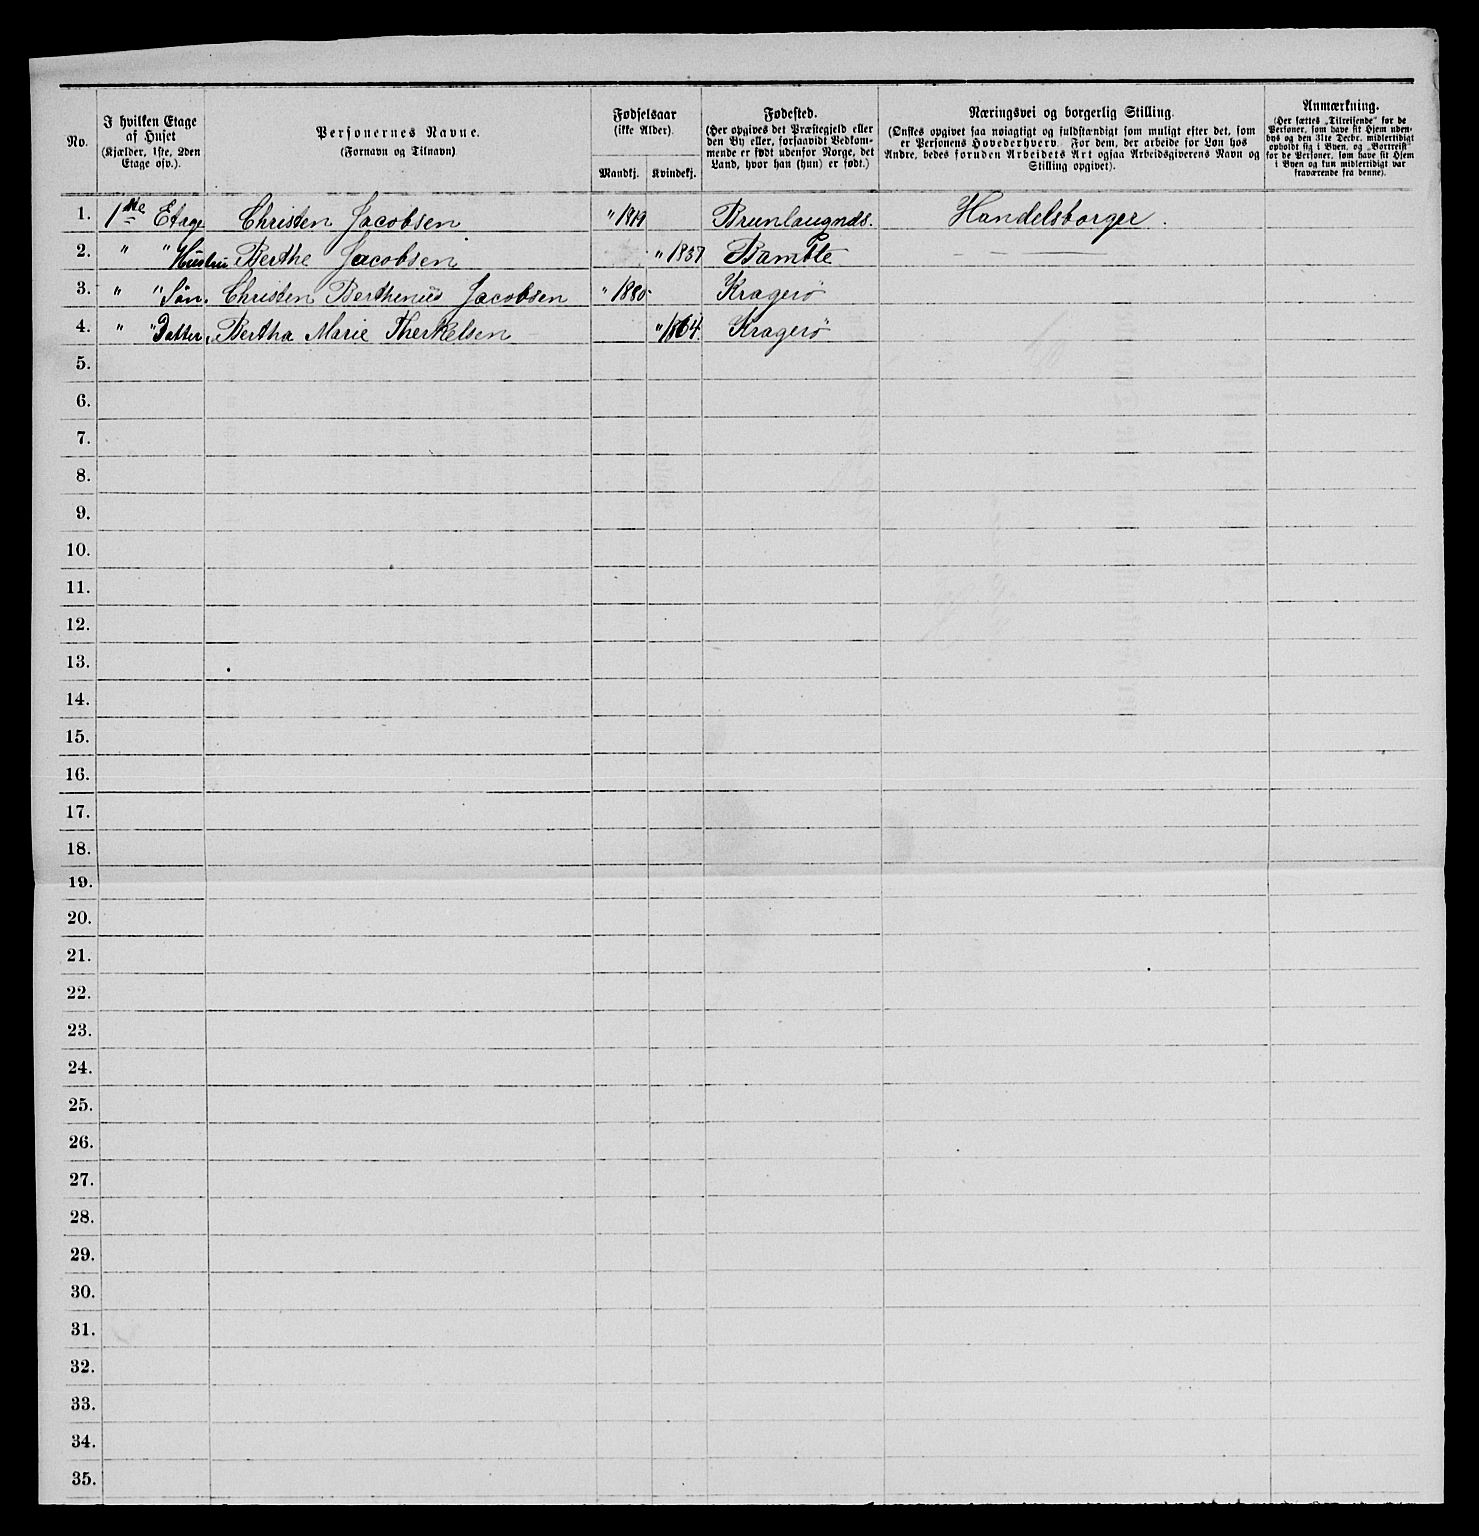 No.
I hvilken Etage
af Huset
(Kjælder, 1ste, 2den
Etage osv.).
Personernes Navne.
(Fornavn og Tilnavn)
Fødselsaar
(ikke Alder).
Mandkj. Kvindekj.
Fødested.
(Her opgives det Præstegjeld eller
den By eller, forsaavidt Vedkom-
mende er født udenfor Norge, det
Land, hvor han (hun) er født.)
Næringsvei og borgerlig Stilling.
(Ønskes opgivet saa nøiagtigt og fuldstændigt som muligt efter det, som
er Personens Hovederhverv. For dem, der arbeide for Løn hos
Andre, bedes foruden Arbeidets Art ogsaa Arbeidsgiverens Navn og
Stilling opgivet).
Anmærkning.
(Her sættes „Tilreisende“ for de
Personer, som have sit Hjem uden-
bys og den 31te Decbr. midlertidigt
opholdt sig i Byen, og „Bortreist“
for de Personer, som have sit Hjem
i Byen og kun midlertidigt var
fraværende fra denne).
1. 1ste Etage Christen Jacobsen " Brunlaugnds. Handelsborger.
2. " " Hustru Berthe Jacobsen " 1837 Bamble — — —
3. " " Søn. Christen Berthenius Jacobsen " 1880 Kragerö
4. " " Datter. Bertha Marie Therkelsen " 1864. Kragerö
5.
6.
7.
8.
9.
10.
11.
12.
13.
14.
15.
16.
17.
18.
19.
20.
21.
22.
23.
24.
25.
26.
27.
28.
29.
30.
31.
32.
33.
34.
35.